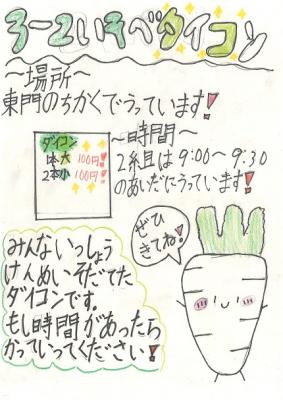 3-2いそべダイコン
～場所～
東門のちかくでうっています!
ダイコン
1本大100円!
2本小100円!
～時間～
2組目は9:00～9:30
のあいだにうっています!
ぜひ
きてね!
みんないっしょう
けんめいそだてた
ダイコンです。
もし時間があったら
かっていってください!